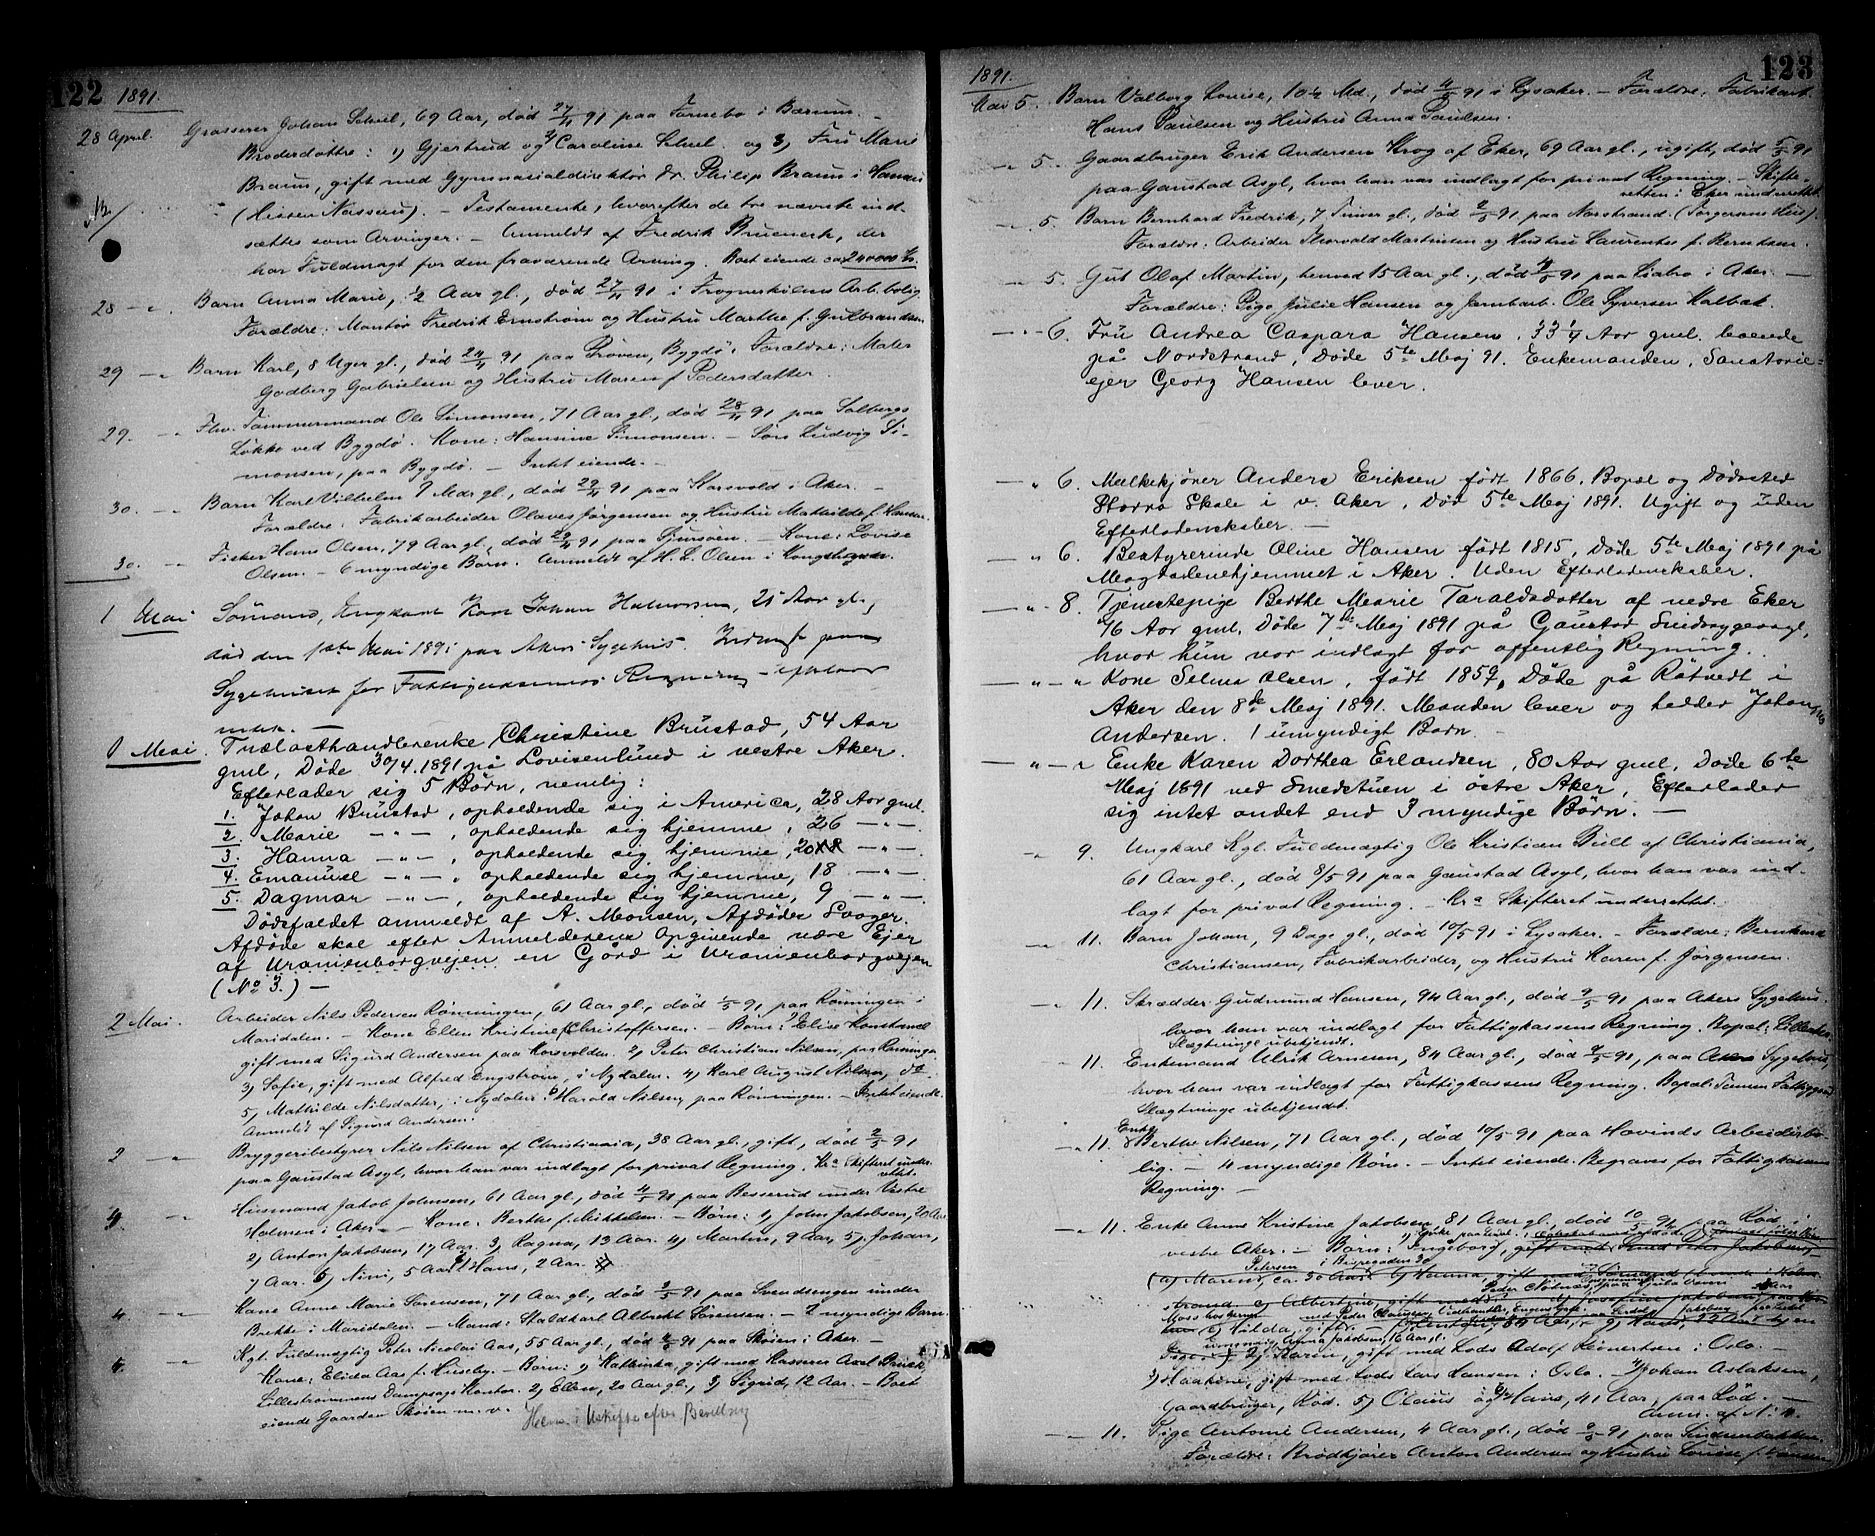 122 1891.
28 April. Grosserer Johan Scheel, 69 Aar, død 27/4 91 paa Fornebo i Bærum. –
Broderdøttre: 1) Gjertrud og 2) Caroline Scheel og 3) Fru Marie
Braun, gift med Gymnasialdirektør Dr. Philip Braun i Hanau
(Hessen Nassau). – Testamente, hvorefter de tre nævnte ind-
sættes som Arvinger. – Anmeldt af Fredrik Bruenech, der
har Fuldmagt for den fraværende Arving. Boet eiende ca. 240000 Kr.
28 – Barn Anna Marie, 1/2 Aar gl., død 27/4 91 i Frognerkilens Arb.bolig
Forældre: Montør Fredrik Ernstrøm og Hustru Marthe f. Gulbrandsen.
29 – Barn Karl, 8 Uger gl., død 24/4 91 paa Prøven, Bygdø. Forældre: Maler
Godberg Gabrielsen og Hustru Maren f. Pedersdatter.
29. – Fhv. Tømmermand Ole Simonsen, 71 Aar gl., død 28/4 91 paa Solbergs
Løkke ved Bygdø. Kone: Hansine Simonsen. – Søn Ludvig Si-
monsen, paa Bygdø. – Intet eiende. –
30. – Barn Karl Vilhelm 7 Mdr gl., død 29/4 91 paa Korsvold i Aker. –
Forældre: Fabrikarbeider Olaves Jørgensen og Hustru Mathilde f. Hansen.
30. – Fisker Hans Olsen, 79 Aar gl., død 29/4 91 paa Sjursøen. – Kone: Lovise
Olsen. – 6 myndige Børn. Anmeldt af H. L. Olsen i Kongshavn.
1 Mai Sømand, Ungkarl Karl Johan Halvorsen, 21 Aar gl.,
død den 1ste Mai 1891 paa Akers Sygehus. Indlagt paa
Sygehuset for Fattigvæsenets Regning – efterlader
intet. –
1 Mai. Trælasthandlerenke Christine Brustad, 54 Aar
gml, Døde 30/4.1891 på Lovisenlund i vestre Aker.
Efterlader sig 5 Børn, nemlig:
1. Johan Brustad, opholdende sig i America, 28 Aar gml.
2. Marie – " – , opholdende sig hjemme, 26 – " –
3. Hanna – " – , opholdende sig hjemme, 20 – " –
4. Emanuel – " – , opholdende sig hjemme, 18 – " –
5. Dagmar – " – , opholdende sig hjemme, 9 – " –
Dødsfaldet anmeldt af A. Monsen, Afdødes Svoger.
Afdøde skal efter Anmelderens Opgivende være Ejer
af Uranienborgvejen en Gård i Uranienborgvejen
(No 3.) –
2 Mai. Arbeider Nils Pedersen Rønningen, 61 Aar gl., død 1/5 91 paa Rønningen i
Maridalen. – Kone Ellen Kristine f. Christoffersen. – Børn: 1) Elise Konstanse
gift med Sigurd Andersen paa Korsvolden. 2) Peter Christian Nilsen, paa Rønningen
3) Sofie, gift med Alfred Engstrøm, i Nydalen. 4) Karl August Nilsen, do.
5) Mathilde Nilsdatter, i Nydalen. 6) Harald Nilsen, paa Rønningen. – Intet eiende.
Anmeldt af Sigurd Andersen.
2 – " Bryggeribestyrer Nils Nilsen af Christiania, 38 Aar gl., gift, død 2/5 91
paa Gaustad Asyl, hvor han var indlagt for privat Regning. Kra Skifteret under-
rettet.
4. – " Husmand Jakob Johnsen, 61 Aar gl., død 4/5 91 paa Besserud under Vestre
Holmen i Aker. – Kone: Berthe f. Mikkelsen. – Børn: 1) John Jakobsen, 20 Aar.
2) Anton Jakobsen, 17 Aar. 3) Ragna, 13 Aar. 4) Martin, 9 Aar, 5) Johan,
7 Aar. 6) Nini, 5 Aar. 7) Hans, 2 Aar.
4 – " Kone Anne Marie Sørensen, 71 Aar gl., død 3/5 91 paa Svendsengen under
Brekke i Maridalen. – Mand: Staldkarl Albrekt Sørensen. – 2 myndige Børn.
4. – " Kgl. Fuldmægtig Peter Nicolai Aas, 55 Aar gl., død 4/5 91 paa Skøien i Aker. –
Kone: Elida Aas f. Huseby. – Børn: 1) Kathinka, gift med Kasserer Axel Bruun
Lillestrømmens Dampsags Kontor. 2) Ellen, 20 Aar gl., 3) Sigrid, 12 Aar. – Boet
eiende Gaarden Skøien m. v. Hens. i Uskifte efter Bevilling
1891. 123
Mai 5. Barn Valborg Louise, 10 1/2 Md., død 4/5 91 i Lysaker. – Forældre: Fabrikarb.
Hans Paulsen og Hustru Anna Paulsen.
– " 5. Gaardbruger Erik Andersen Krog af Eker, 69 Aar gl., ugift, død 5/5 91
paa Gaustad Asyl, hvor han var indlagt for privat Regning. – Skifte-
retten i Eker underrettet.
– " 5. Barn Bernhard Fredrik, 7 Timer gl., død 2/5 91 paa Norstrand. (Torgersens Hus).
Forældre: Arbeider Thorvald Martinsen og Hustru Laurentse f. Berntsen.
– " 5. Gut Olaf Martin, henved 15 Aar gl., død 4/5 91 paa Liabro i Aker. –
Forældre: Pige Julie Hansen og Jernbarb. Ole Syversen Kalbak.
– " – 6. Fru Andrea Caspara Hansen, 33 1/4 Aar gml. boende
på Nordstrand, Døde 5te Maj 91. Enkemanden, Sanatorie-
ejer Georg Hansen lever.
– " 6. Melkekjører Anders Eriksen født 1866. Bopæl og Dødssted
Storro Skole i v. Aker, Død 5te Maj 1891. Ugift og uden
Efterladenskaber. –
– " 6. Bestyrerinde Oline Hansen født 1815, Døde 5te Maj 1891 på
Magdalenehjemmet i Aker. Uden Efterladenskaber.
– " – 8. Tjenestepige Berthe Marie Taraldsdatter af nedre Eker
46 Aar gml. Døde 7de Maj 1891 på Gaustad Sindssygeasyl,
hvor hun var indlagt for offentlig Regning.
– " – " Kone Selma Olsen, født 1857, Døde på Råtvedt i
Aker den 8de Maj 1891. Manden lever og hedder Johan
Andersen. 1 umyndigt Barn. –
– " – " Enke Karen Dorthea Erlandsen, 80 Aar gml, Døde 6te
Maj 1891 ved Smedstuen i østre Aker, Efterlader
sig intet andet end 3 myndige Børn. –
– " 9. Ungkarl Kgl. Fuldmægtig Ole Kristian Bull af Christiania,
61 Aar gl., død 8/5 91 paa Gaustad Asyl, hvor han var ind-
lagt for privat Regning. – Kra Skifteret underrettet.
– " 11. Barn Johan, 9 Dage gl., død 10/5 91 i Lysaker. – Forældre: Bernhard
Christiansen, Fabrikarbeider, og Hustru Karen f. Jørgensen.
– " 11. Skrædder Gudmund Hansen, 94 Aar gl., død 9/5 91 paa Akers Sygehus,
hvor han var indlagt for Fattigkassens Regning. Bopæl: Lilleaker.
Slægtninge ubekjendt.
– " 11. Enkemand Ulrik Arnesen, 84 Aar gl., død 9/5 91, paa Akers Sygehus,
hvor han var indlagt for Fattigkassens Regning. Bopæl: Tonsen Fattiggaard
Slægtninge ubekjendt.
– " 11. Enke Berthe Nilsen, 71 Aar gl., død 10/5 91 paa Hovinds Arbeiderbo-
lig. – 4 myndige Børn. – Intet eiende. Begraves for Fattigkassens
Regning. –
– " 11. Enke Anne Kristine Jakobsen, 81 Aar gl., død 10/5 91, paa Rød i
vestre Aker. – Børn: 1) Ingeborg, gift med Smed Peter Jakobsen,
(a) Maren Petersen, ca. 30 Aar, b) Hanna, gift med Sømand
c) Albertine, gift med
Hilda, gift med Peder
umyndig, Anna Jakobsen, 16 Aar gl.
2) Karen, gift med Lods Adolf Reinertsen i Oslo. –
3) Haakine, gift med Lods Lars Hansen i Oslo. – 4) Johan Aslaksen,
Gaardbruger, Rød. 5) Olaus og 6) Hans, 41 Aar, paa Rød. –
Anm. af No 4.
– " – 11. Pige Antonie Andersen, 4 Aar gl., død 9/5 91 paa Lindernbakken.
Forældre: Brødkjører Anton Andersen og Hustru Louise f. Hansen